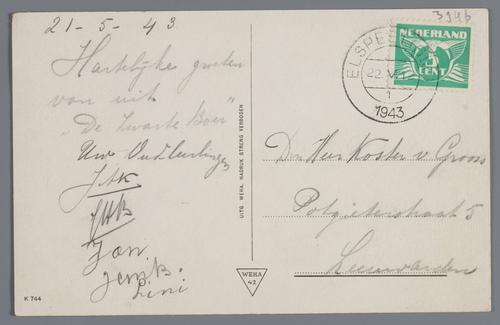 21-5-43
Hartelijke groeten
van uit
"De Zwarte Boer"
Uw Oudleerlingen
Jan.
Lini
K 744
UITG. WEHA. NADRUK STRENG VERBODEN
WEHA
42
394b
NEDERLAND
5
CENT
ELSPEET
22.V
1
1943
Den Heer Koster v Groos
Potgieterstraat 5
Leeuwarden